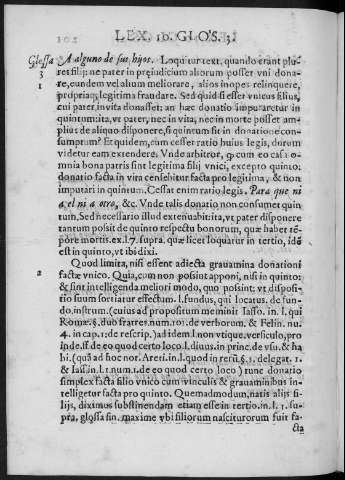 102 LEX. 10. GLOS. 3.
Glossa A alguno de sus hijos. Loquitur text. quando erant plu-
3 res filij: ne pater in præiudicium aliorum posset vni dona-
1 re, eundem vel alium meliorare, alios inopes relinquere,
propriaq; legitima fraudare. Sed quid si esset vnicus filius,
cui pater, in vita donasset: an hæc donatio imputaretur in
quintum: ita, vt pater, nec in vita, nec in morte posset am-
plius de aliquo disponere, si quintum sit in donatione con-
sumptum? Et quidem, cum cesset ratio huius legis, dorum
videtur eam extendere. Vnde arbitror, q̃ cum eo casu o-
mnia bona patris sint legitima filij vnici, excepto quinto:
donatio facta in vita censebitur facta pro legitima, & non
imputari in quintum. Cessat enim ratio legis. Para que ni
a el ni a otro, &c. Vnde talis donatio non consumet quin
tum, Sed necessario illud extenuabit: ita, vt pater disponere
tantum possit de quinto respectu bonorum, quæ habet té-
pore mortis. ex. l. 7. supra. quæ licet loquatur in tertio, idé
est in quinto, vt ibi dixi.
Quod limita, nisi essent adiecta grauamina donationi
2 factæ vnico. Quia, cum non possint apponi, nisi in quinto:
& sint intelligenda meliori modo, quo possint; vt disposi-
tio suum sortiatur effectum. l. fundus, qui locatus. de fun-
do. instrum. (cuius ad propositum meminit Iasso. in. l. qui
Romæ. §. duo fratres num. 101. de verborum. & Felin. nu.
4. in cap. 1. de rescrip.) ad idem l. non vtique. versiculo, pro
inde. ff. de eo quod certo loco l. diuus. in princ. de vsu. & ha
bi. (quã ad hoc nor. Areti. in l. quod in rerũ §. 1. delegat. 1.
& Iass. in. l. 1. num. 1. de eo quod certo loco) tunc donatio
simplex facta filio vnico cum vinculis & grauaminibus in-
telligetur facta pro quinto. Quemadmodum, natis alijs fi-
lijs, diximus substinendam etiam esse in tertio. in. l. 1. su-
pra, glossa fin. maxime vbi filiorum nasciturorum fuit fa-
cta